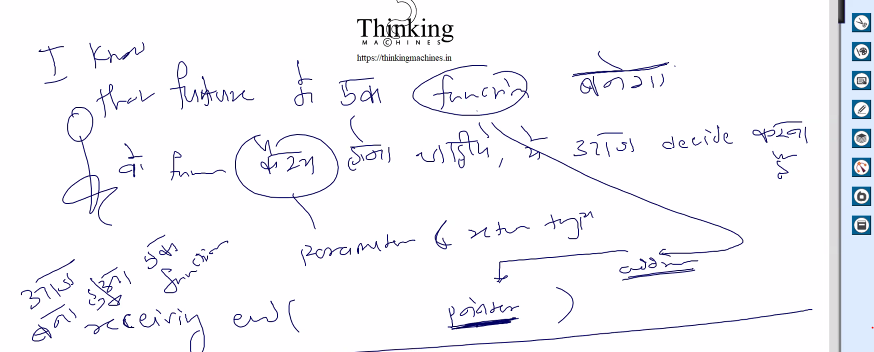 Thinking
MACHINES
https://thinkingmachines.in
I know
that future में एक function बनेगा
वो func कैसा होना चाहिये, ये आज decide करना है
parameter & return type
address
आज एक function
receiving end ( pointer )